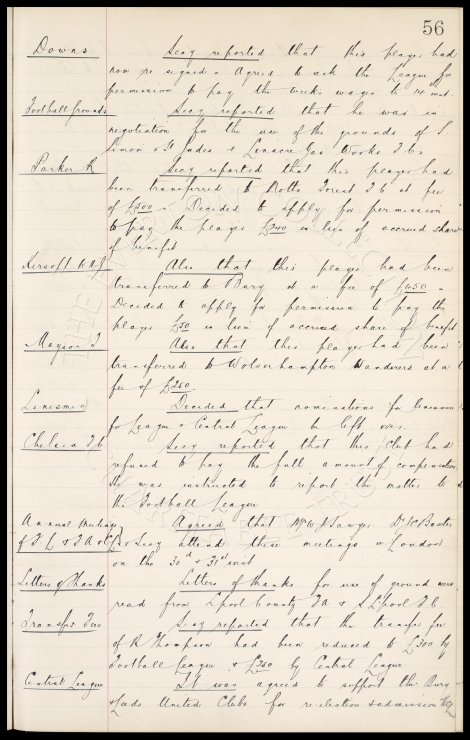 56
Downs Secy reported that this player had
now re-signed & Agreed to ask the League for
permission to pay the weeks wages to 14 inst.
Football Grounds Secy reported that he was in
negotiation for the use of the grounds of S.
Simon & St Judes & Linacre Gas Works F Cs
Parker R Secy reported that this player had
been transferred to Notts Forest F C at fee
of £500 - Decided to apply for permission
to pay the player £240 in lieu of accrued share
of benefit
Also that this player had been
transferred to Bury at a fee of £450 -
Decided to apply for permission to pay the
player £50 in lieu of accrued share of benefit
Mayson T Also that this player had been
transferred to Wolverhampton Wanderers at a
fee of £250.
Linesmen Decided that nominations for Linesmen
for League & Central League be left over.
Chelsea F C Secy reported that this Club had
refused to pay the full amount of compensation
He was instructed to report the matter to
the Football League
Annual Meetings Agreed that Mr W J Sawyer Dr J C Baxter
of F. L & F A & C L & Secy attend these meetings in London
on the 30th & 31st inst
Letters of Thanks Letters of thanks for use of ground were
read from Lpool County FA & S Lpool F C.
Transfer Fees Secy reported that the transfer fee
of R Thompson had been reduced to £300 by
Football League & £250 by Central League
Central League It was agreed to support the Bury
& Leeds United Clubs for re-election & admission